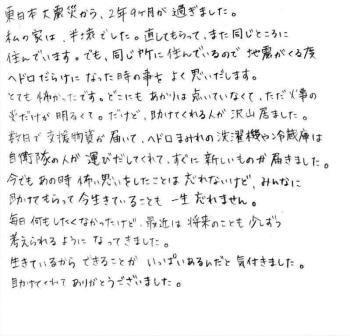 東日本大震災から、2年9ヶ月が過ぎました。
私の家は、半壊でした。直してもらって、また同じところに
住んでいます。でも、同じ所に住んでいるので地震がくる度
ヘドロだらけになった時の事をよく思いだします。
とても怖かったです。どこにもあかりは点いていなくて、ただ火事の
光だけが明るくて。だけど、助けてくれる人が沢山居ました。
数日で支援物資が届いて、ヘドロまみれの洗濯機や冷蔵庫は
自衛隊の人が運びだしてくれて、すぐに新しいものが届きました。
今でもあの時怖い思いをしたことは忘れないけど、みんなに
助けてもらって今生きていることも一生忘れません。
毎日何もしたくなかったけど、最近は将来のことも少しずつ
考えられるようになってきました。
生きているからできることがいっぱいあるんだと気付きました。
助けてくれてありがとうございました。